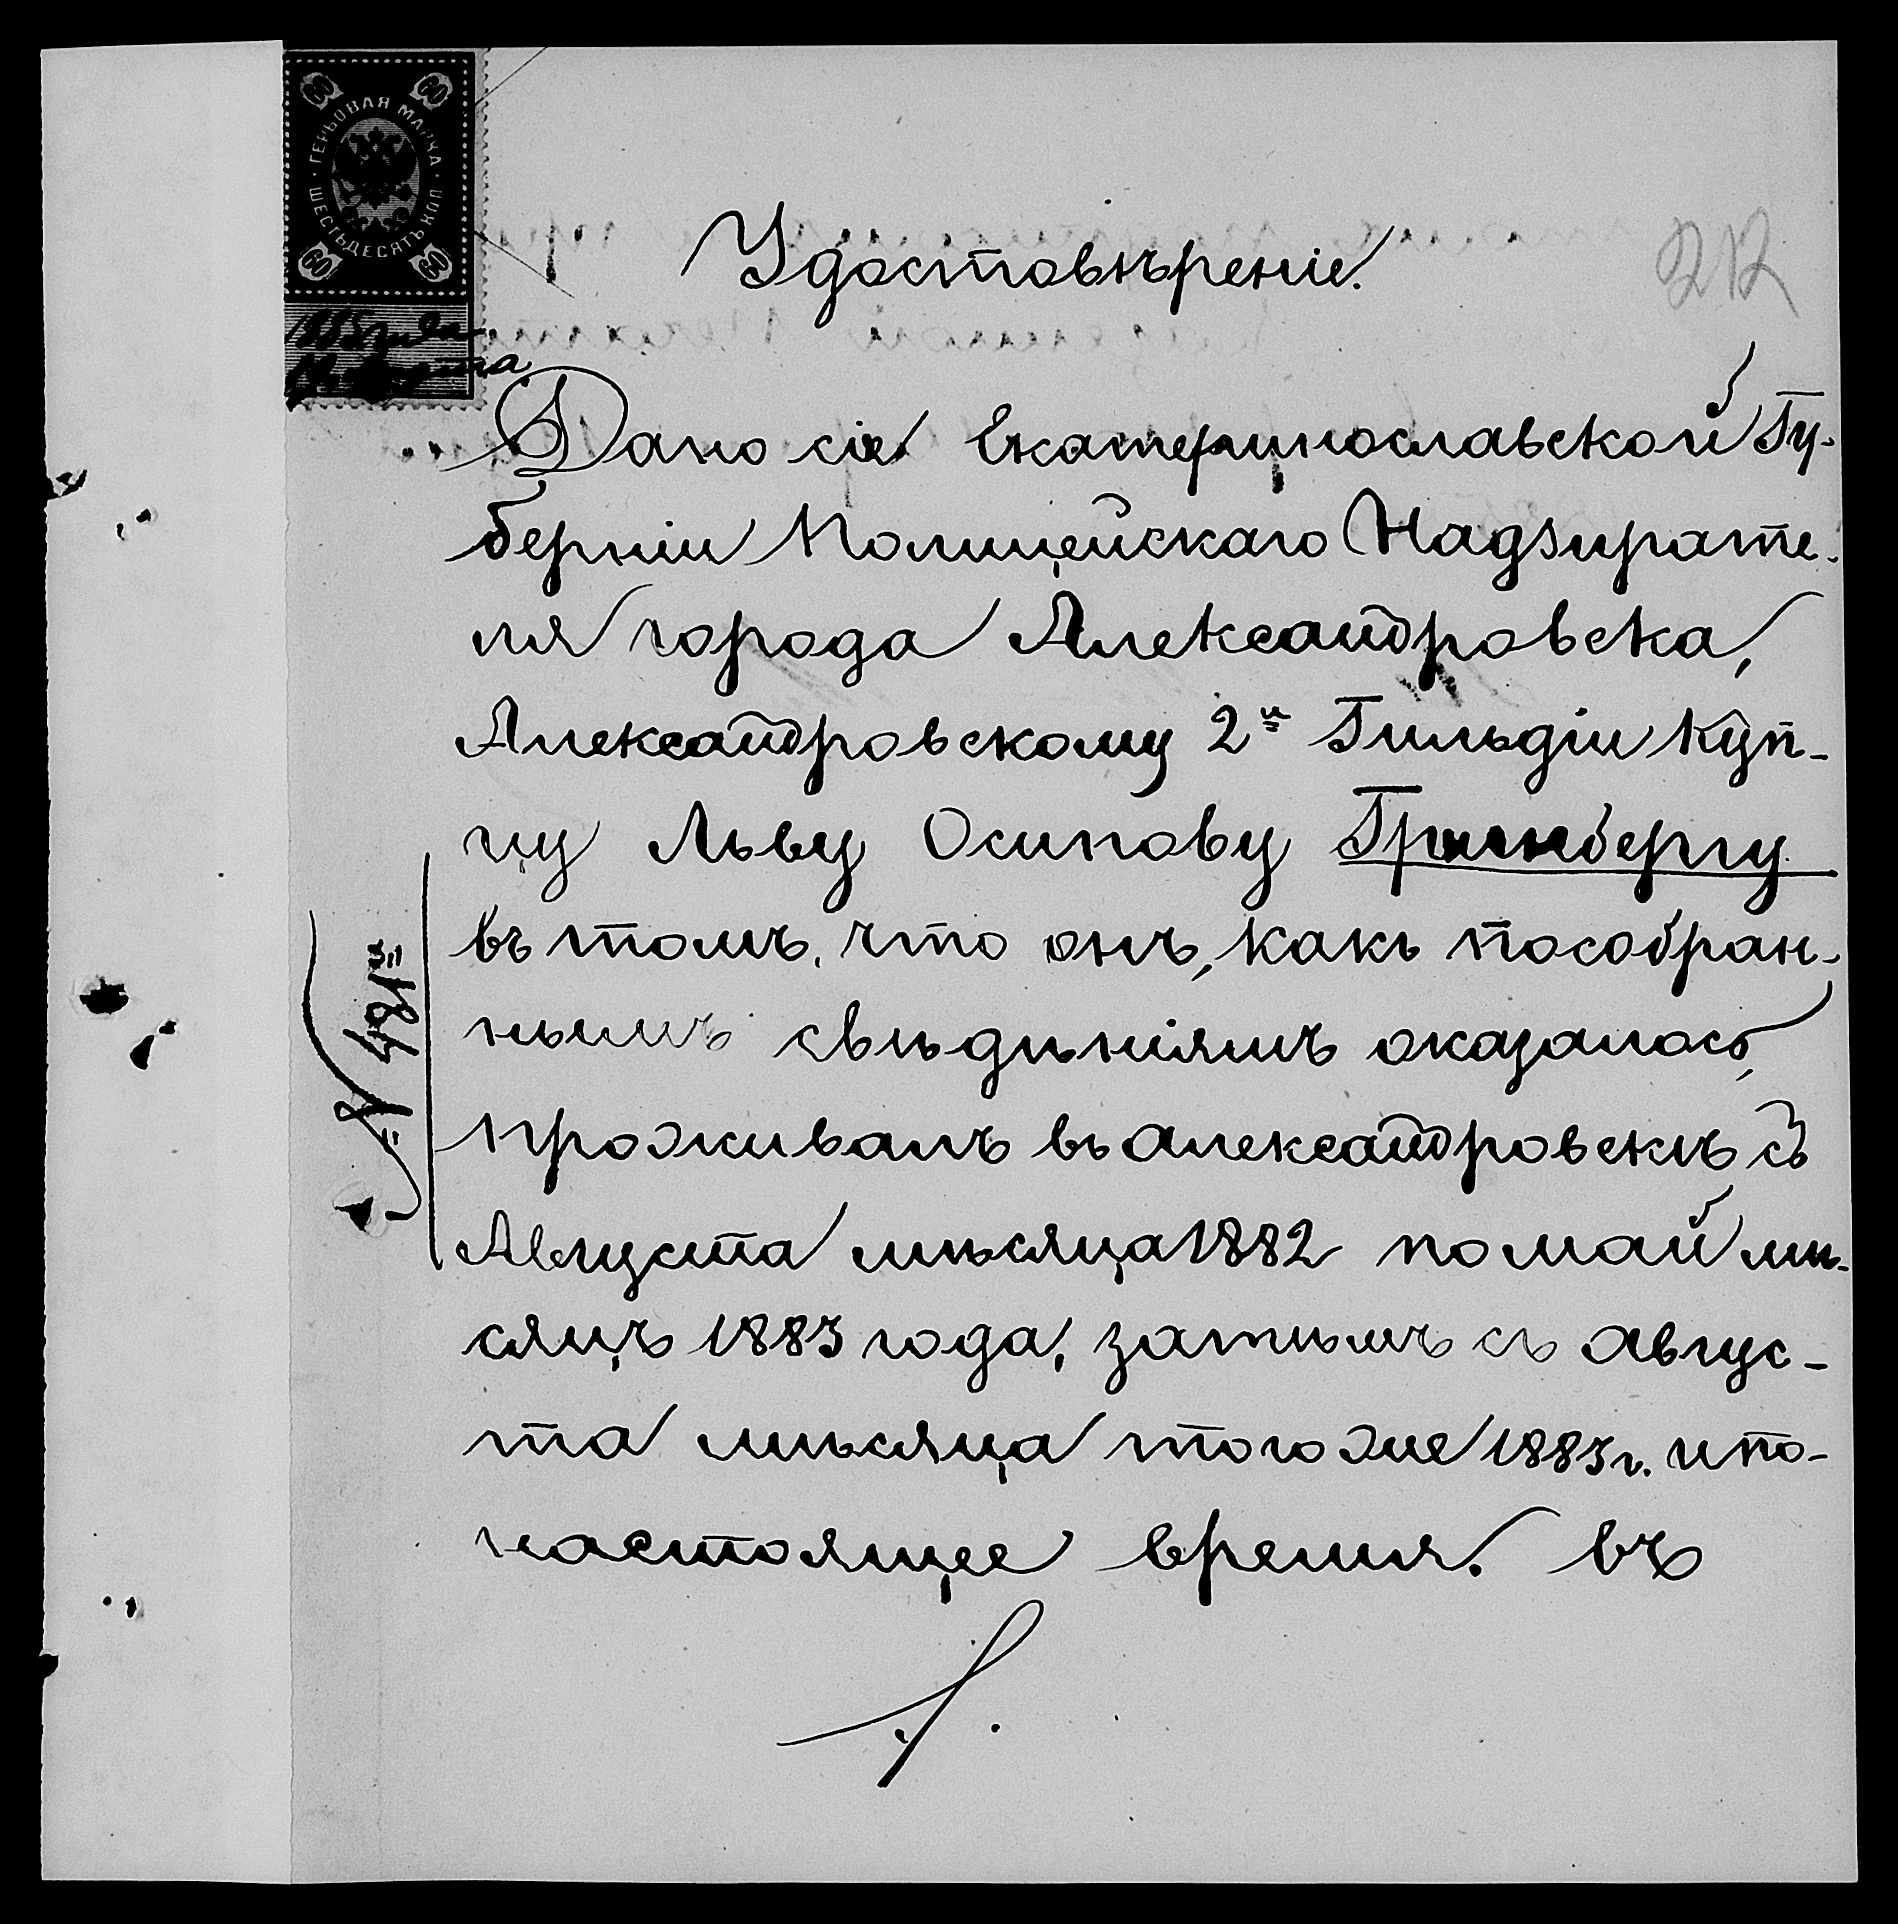 60 60
ГЕРБОВАЯ МАРКА
ШЕСТЬДЕСЯТЪ КОП
60 60
212
Удостовѣреніе.
Дано сіе Екатеринославской Гу-
берніи Полицейскаго Надзирате-
ля города Александровска,
Александровскому 2й Гильдіи Куп-
цу Льву Осипову Гринбергу
въ томъ, что онъ, какъ пособран-
нымъ свѣдѣніямъ оказалось,
проживалъ въ Александровскѣ съ
Августа мѣсяца 1882 по май мѣ-
сяцъ 1883 года, затѣмъ съ Авгус-
та мѣсяца того же 1883 г. и по-
настоящее время. въ